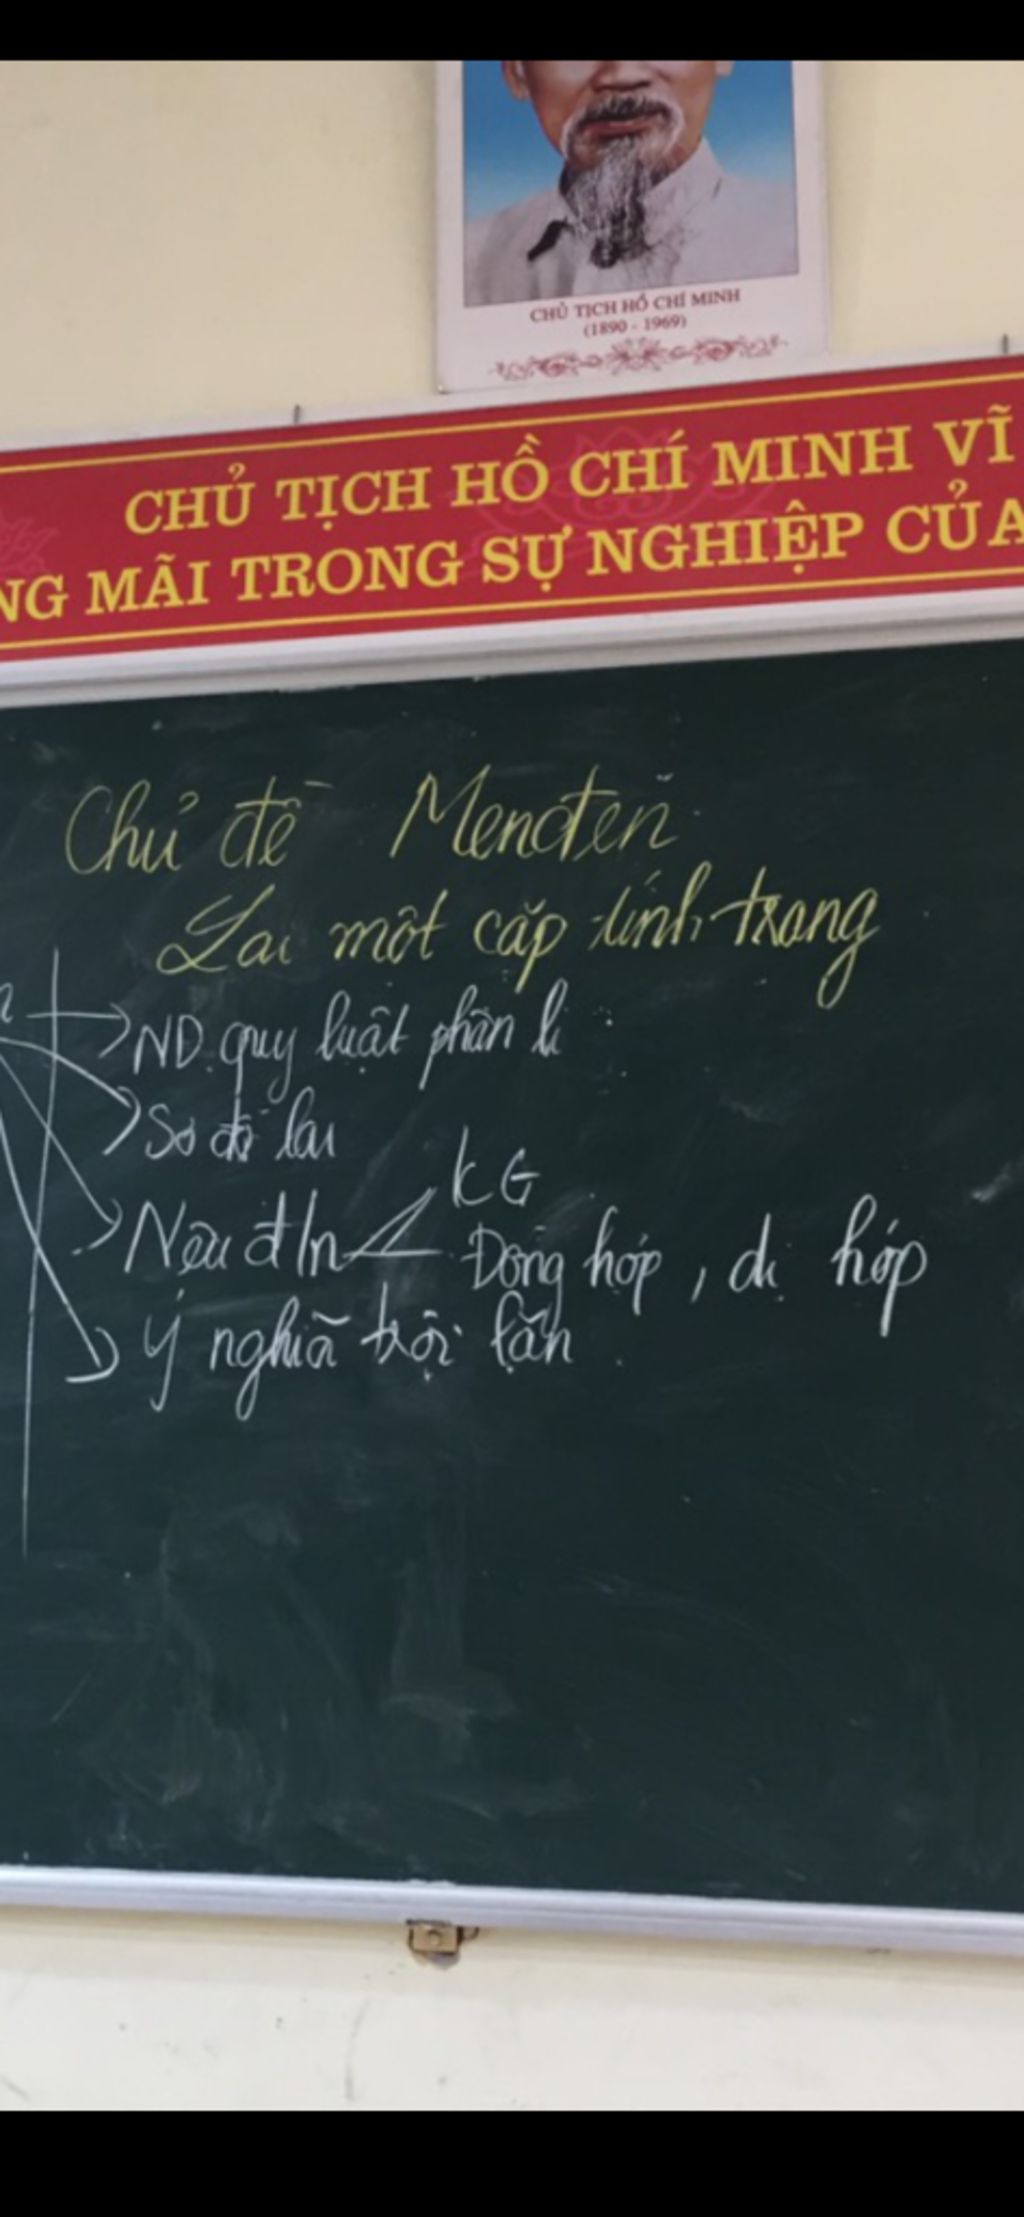 CHỦ TỊCH HỒ CHÍ MINH
(1890 - 1969)
CHỦ TỊCH HỒ CHÍ MINH VĨ
NG MÃI TRONG SỰ NGHIỆP CỦA
Chủ đề Menđen
Lai một cặp tính trạng
ND quy luật phân li :
Sơ đồ lai
Nêu đ/n < KG
Đồng hợp, dị hợp
Ý nghĩa trội lặn.